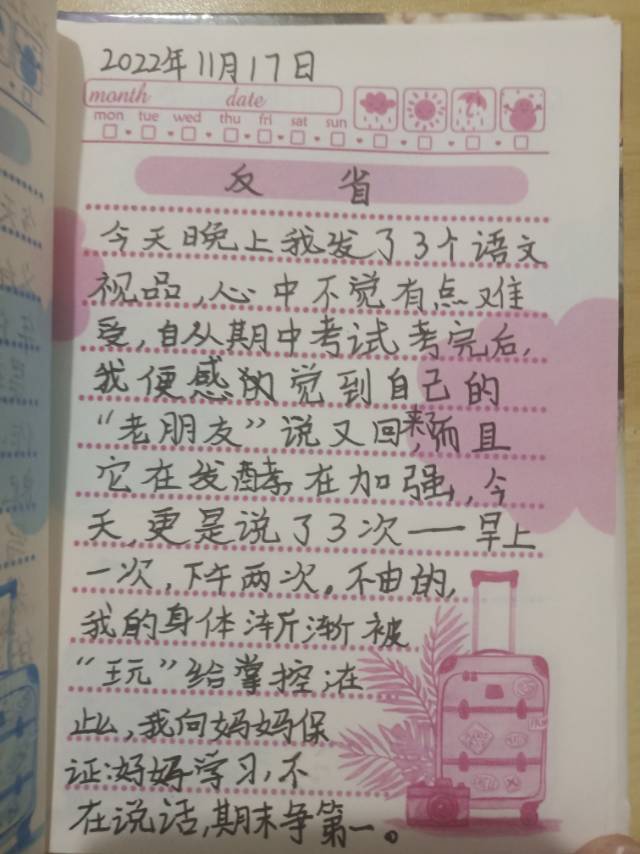 2022年11月17日
month date
mon tue wed thu fri sat sun
反 省
今天晚上我发了3个语文
视品,心中不觉有点难
受,自从期中考试考完后,
我便感觉到自己的
“老朋友”说又回来了,而且
它在发酵在加强,今
天,更是说了3次——早上
一次,下午两次。不由的,
我的身体渐渐被
“玩”给掌控,在
此,我向妈妈保
证:好好学习,不
在说话,期末争第一。